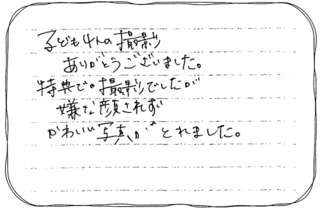 子ども4人の撮影
ありがとうございました。
特典での撮影でしたが
嫌な顔されず
かわいい写真がとれました。